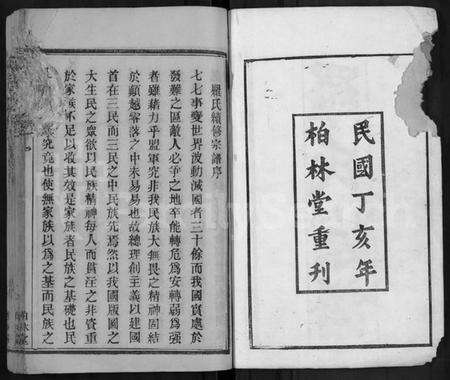 民國丁亥年
柏林堂重刊
羅氏續修宗譜序
七七事變世界波動滅國者三十餘而我國實處於
發難之區敵人必爭之地卒能轉危爲安轉弱爲强
者雖藉力乎盟軍究非我民族大無畏之精神固結
於顛越零落之中未易易也故總理創主義以建國
首在三民而三民之中民族先焉然以我國版圖之
大生民之眾欲以民族精神每人而貫注之非資重
於家族不足以收其效是家族者民族之基礎也民
究竟也使無家族以爲之基而民族之